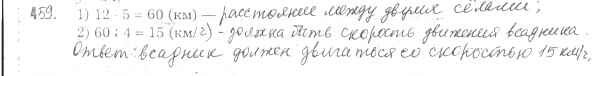 459. 1) 12 · 5 = 60 (км) — расстояние между двумя сёлами;
2) 60 : 4 = 15 (км/г) - должна быть скорость движения всадника.
Ответ: всадник должен двигаться со скоростью 15 км/г,